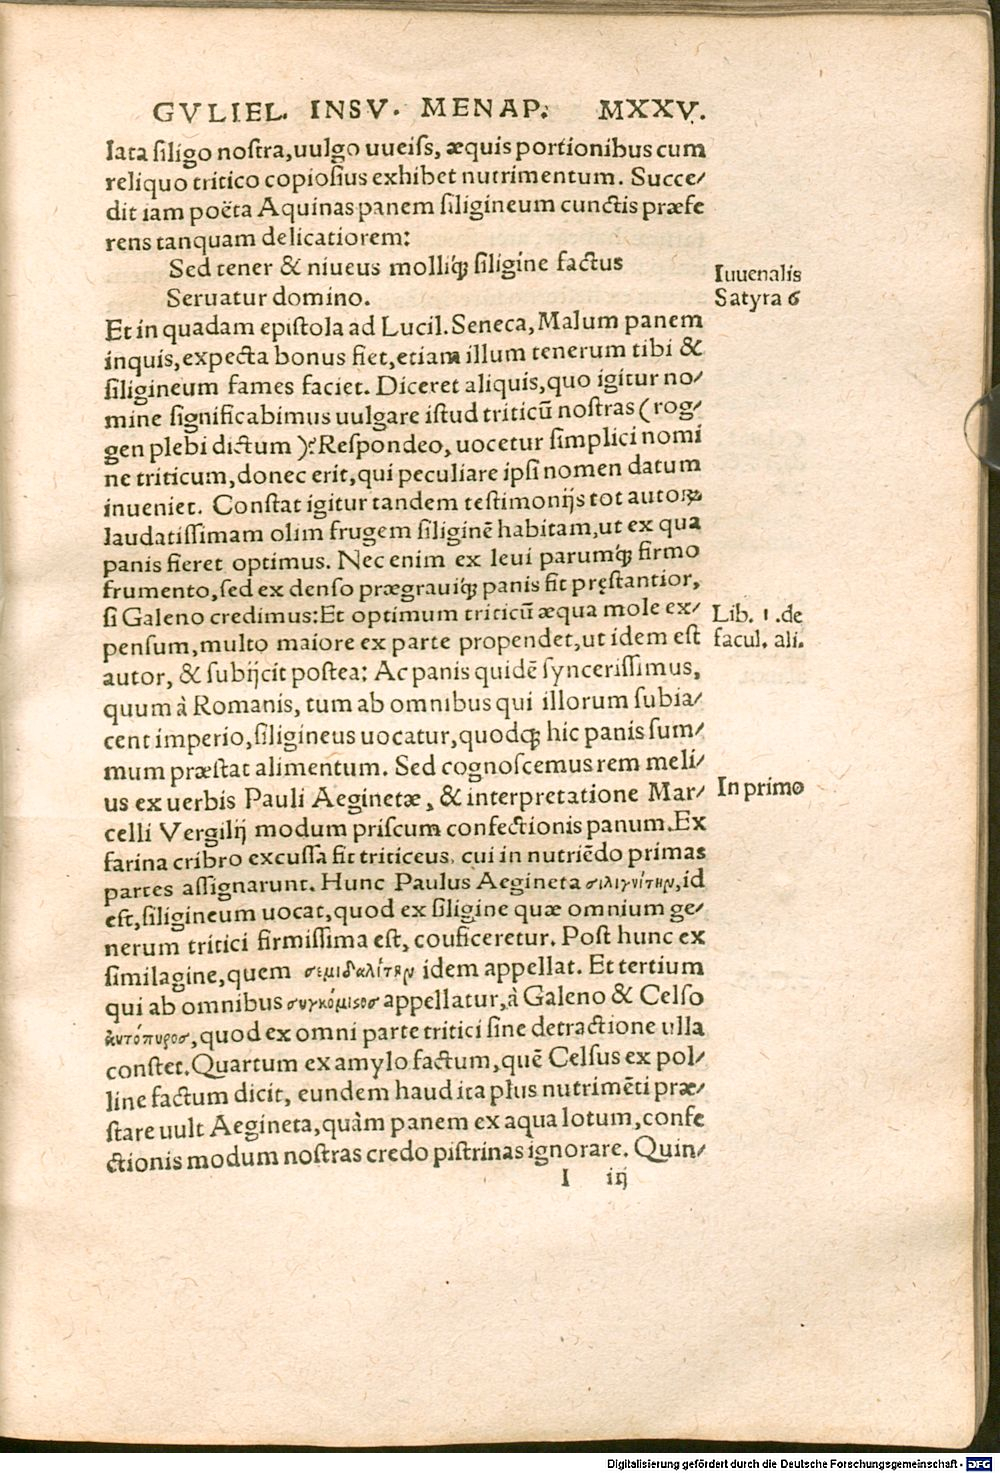 GVLIEL. INSV. MENAP. MXXV.
lata siligo nostra, uulgo uueiss, æquis portionibus cum
reliquo tritico copiosius exhibet nutrimentum. Succe/
dit iam poëta Aquinas panem siligineum cunctis præfe
rens tanquam delicatiorem:
Sed tener & niueus molliq́; siligine factus
Seruatur domino.
Iuuenalis
Satyra 6
Et in quadam epistola ad Lucil. Seneca, Malum panem
inquis, expecta bonus fiet, etiam illum tenerum tibi &
siligineum fames faciet. Diceret aliquis, quo igitur no/
mine significabimus uulgare istud triticū nostras (rog/
gen plebi dictum)? Respondeo, uocetur simplici nomi
ne triticum, donec erit, qui peculiare ipsi nomen datum
inueniet. Constat igitur tandem testimonijs tot autorꝝ
laudatissimam olim frugem siliginē habitam, ut ex qua
panis fieret optimus. Nec enim ex leui parumq́; firmo
frumento, sed ex denso prægrauiq́; panis fit pręstantior,
si Galeno credimus: Et optimum triticū æqua mole ex/
pensum, multo maiore ex parte propendet, ut idem est
Lib. 1. de
facul. ali.
autor, & subijcit postea: Ac panis quidē syncerissimus,
quum à Romanis, tum ab omnibus qui illorum subia/
cent imperio, siligineus uocatur, quodq́; hic panis sum/
mum præstat alimentum. Sed cognoscemus rem meli/
us ex uerbis Pauli Aeginetæ, & interpretatione Mar/
In primo
celli Vergilij modum priscum confectionis panum. Ex
farina cribro excussa fit triticeus, cui in nutriēdo primas
partes assignarunt. Hunc Paulus Aegineta σιλιγνίτην, id
est, siligineum uocat, quod ex siligine quæ omnium ge/
nerum tritici firmissima est, couficeretur. Post hunc ex
similagine, quem σεμιδαλίτην idem appellat. Et tertium
qui ab omnibus συγκόμισοσ appellatur, à Galeno & Celso
ἀυτόπυροσ, quod ex omni parte tritici sine detractione ulla
constet. Quartum ex amylo factum, quē Celsus ex pol/
line factum dicit, eundem haud ita plus nutrimēti præ/
stare uult Aegineta, quàm panem ex aqua lotum, confe
ctionis modum nostras credo pistrinas ignorare. Quin/
I iij
Digitalisierung gefördert durch die Deutsche Forschungsgemeinschaft - DFG